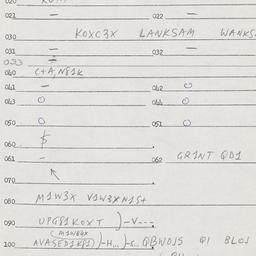 020
021 — 022 —
030 KOXC3X LANKSAM WANKS
031 — 032 —
033 —
040 C+A,N81K
041 — 042 O
043 O 044 O
050 O 051 O
060
061 — 062 GR1NT QD1
070
080 M1W3X V1W3XN1S+
090 UPG81KOXT )-V---
100 AVASED1K81)-H... )-C.. QBWOJS Q1 BLOJ